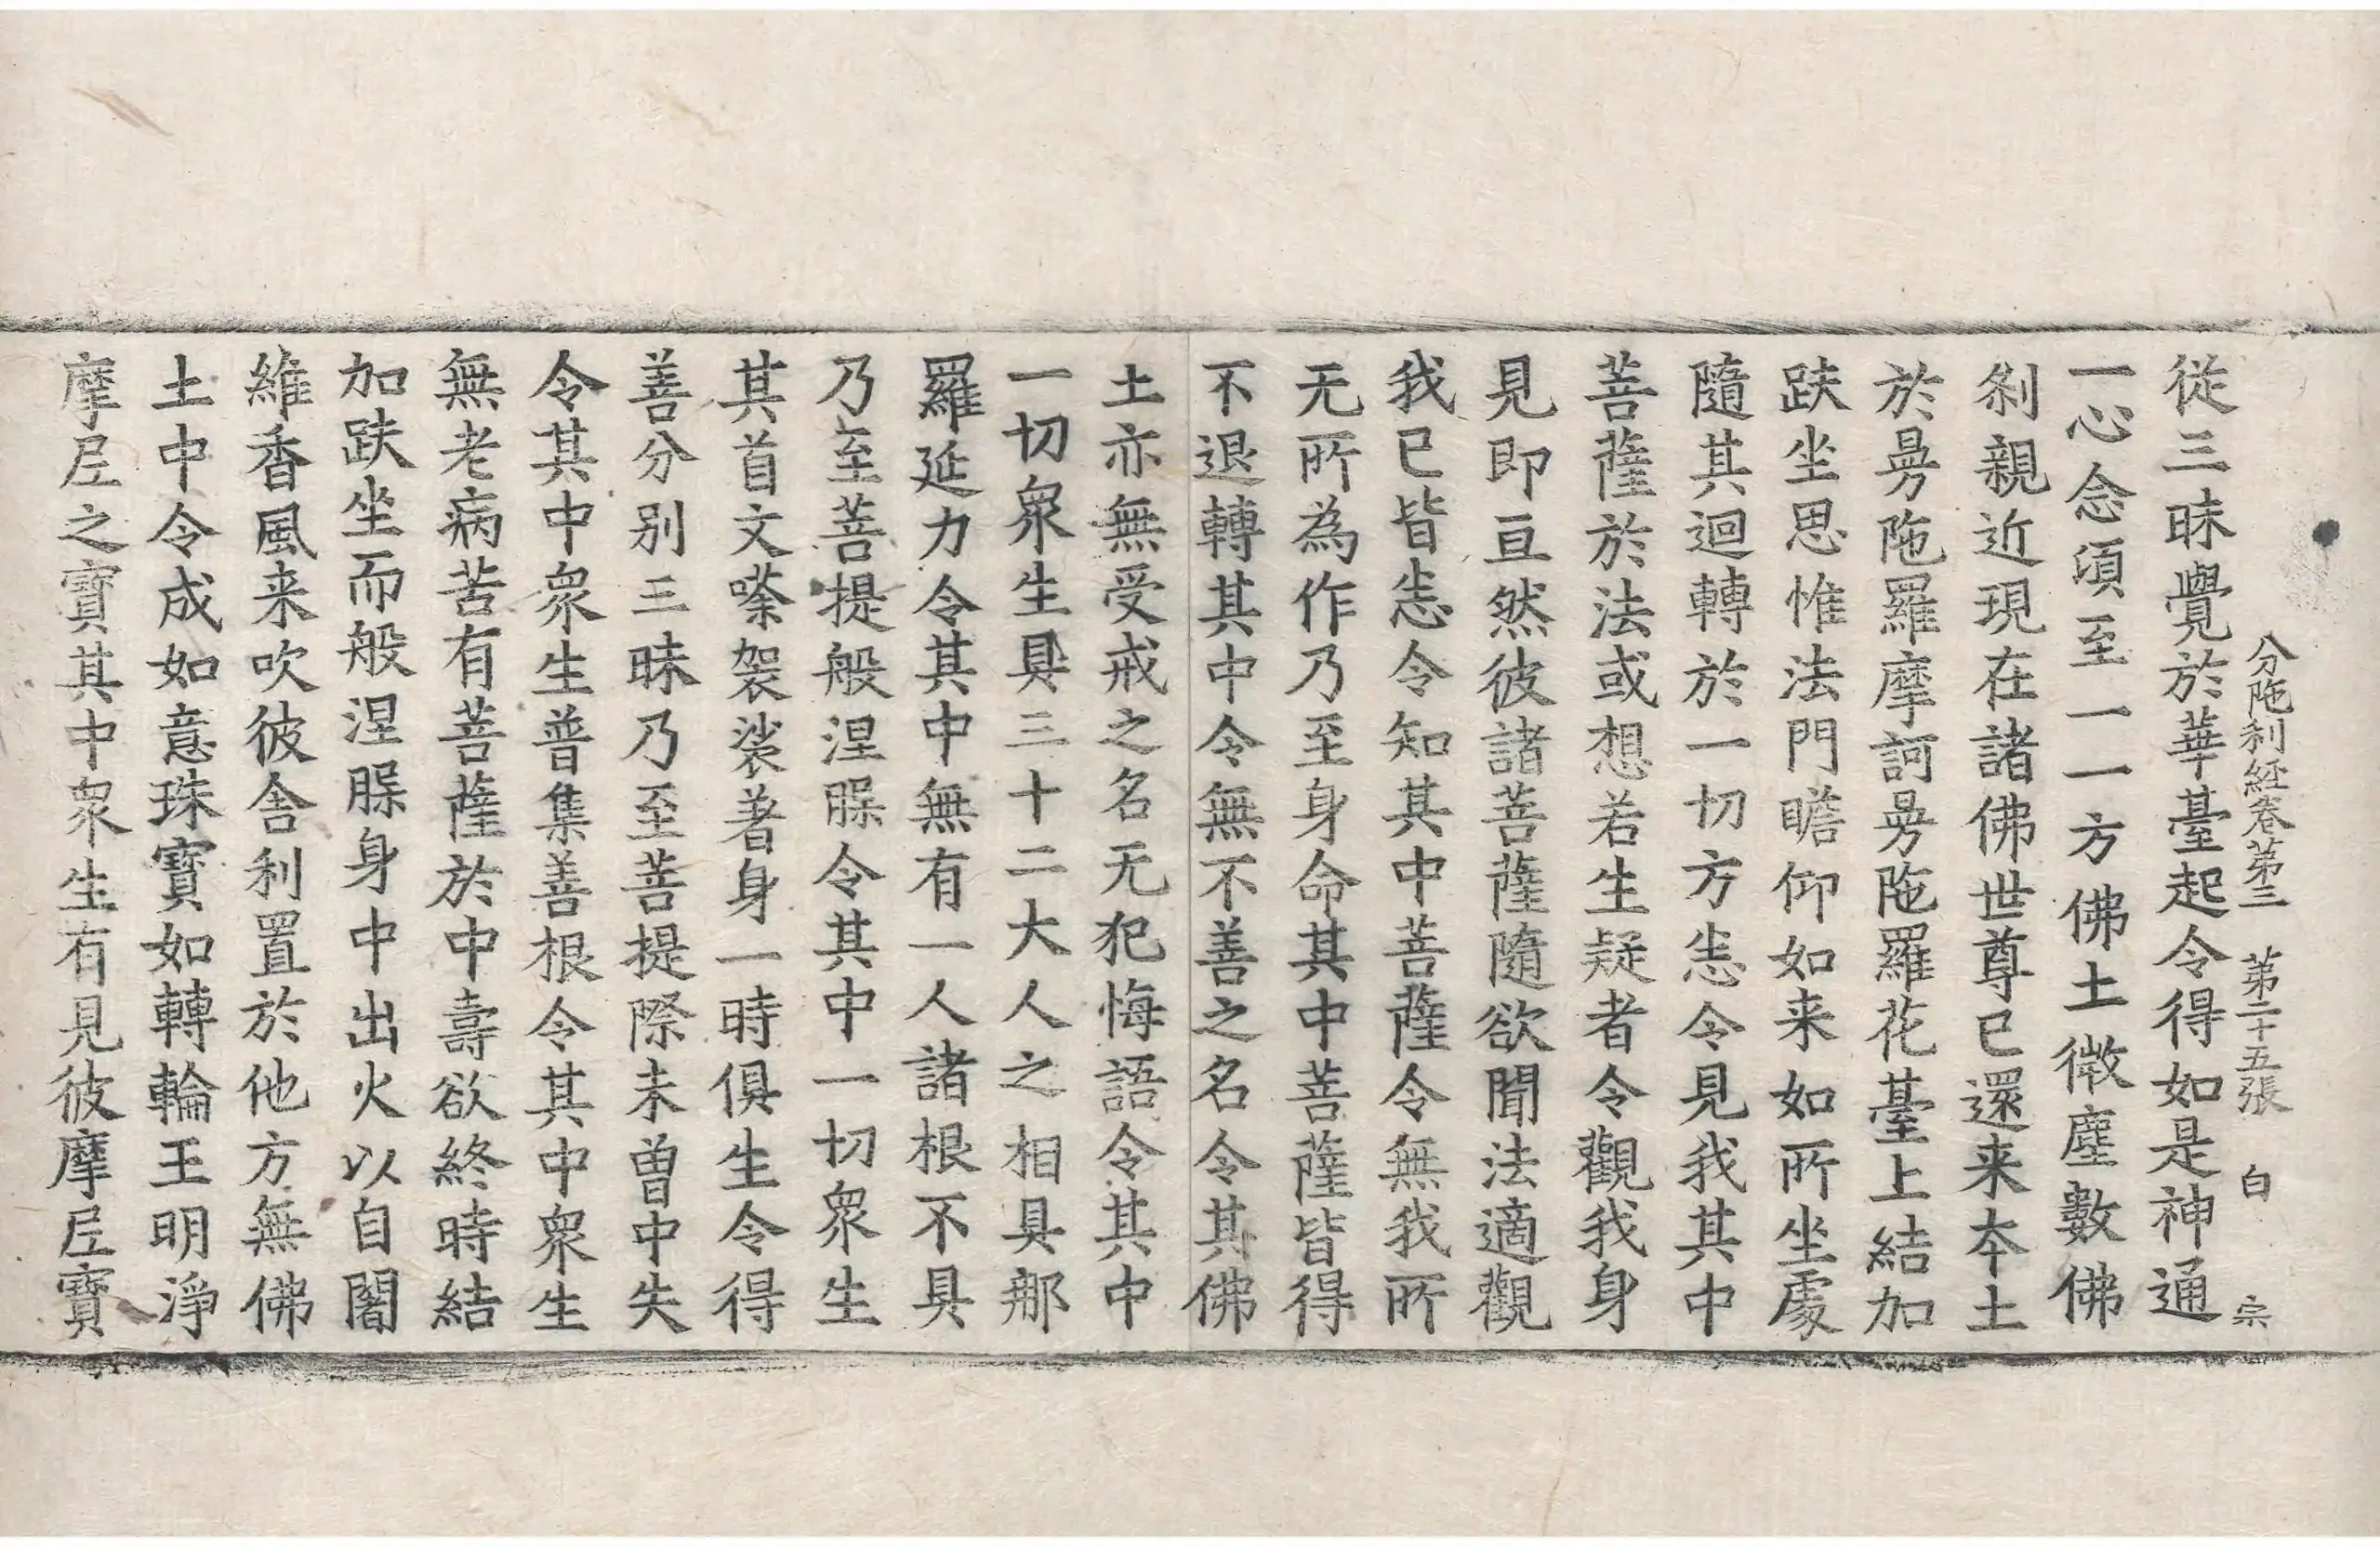 分陁利経卷第三　第二十五張　白　宗
從三昧覺於華臺起令得如是神通
一心念須至一一方佛土微塵數佛
刹親近現在諸佛世尊已還来夲土
於㬅陁羅摩訶㬅陁羅花臺上結加
趺坐思惟法門瞻仰如来如所坐處
隨其迴轉於一切方恙令見我其中
菩薩於法或想若生疑者令觀我身
見即亘然彼諸菩薩隨欲聞法適觀
我已皆恙令知其中菩薩令無我所
无所為作乃至身命其中菩薩皆得
不退轉其中令無不善之名令其佛
土亦無受戒之名无犯悔語令其中
一切衆生具三十二大人之相具那
羅延力令其中無有一人諸根不具
乃至菩提般涅𦜖令其中一切衆生
其首文𡖖袈裟著身一時俱生令得
善分别三昧乃至菩提際未曽中失
令其中衆生普集善根令其中衆生
無老病苦有菩薩於中壽欲終時結
加趺坐而般涅𦜖身中出火以自闍
維香風来吹彼舍利置於他方無佛
土中令成如意珠寶如轉輪王明淨
摩𡰱之寶其中衆生有見彼摩𡰱寶